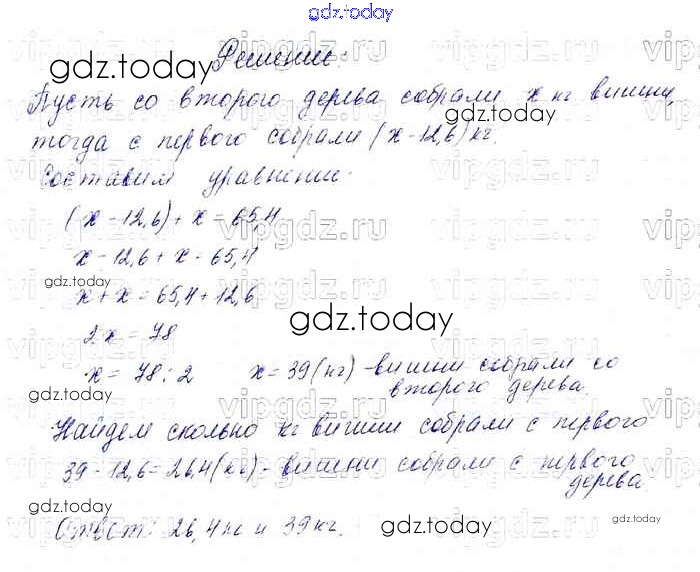 gdz.today
Решение:
gdz.today
Пусть со второго дерева собрали x кг вишни,
gdz.today
тогда с первого собрали (x-12,6) кг.
Составим уравнение:
(x-12,6)+x=65,4
x-12,6+x=65,4
gdz.today
x+x=65,4+12,6
gdz.today
2x=78
x=78:2 x=39(кг)-вишни собрали со
второго дерева.
gdz.today
gdz.today
Найдем сколько кг вишни собрали с первого
39-12,6=26,4(кг)-вишни собрали с первого
дерева
gdz.today
Ответ: 26,4кг и 39кг.
gdz.today
gdz.today
vipgdz.ru